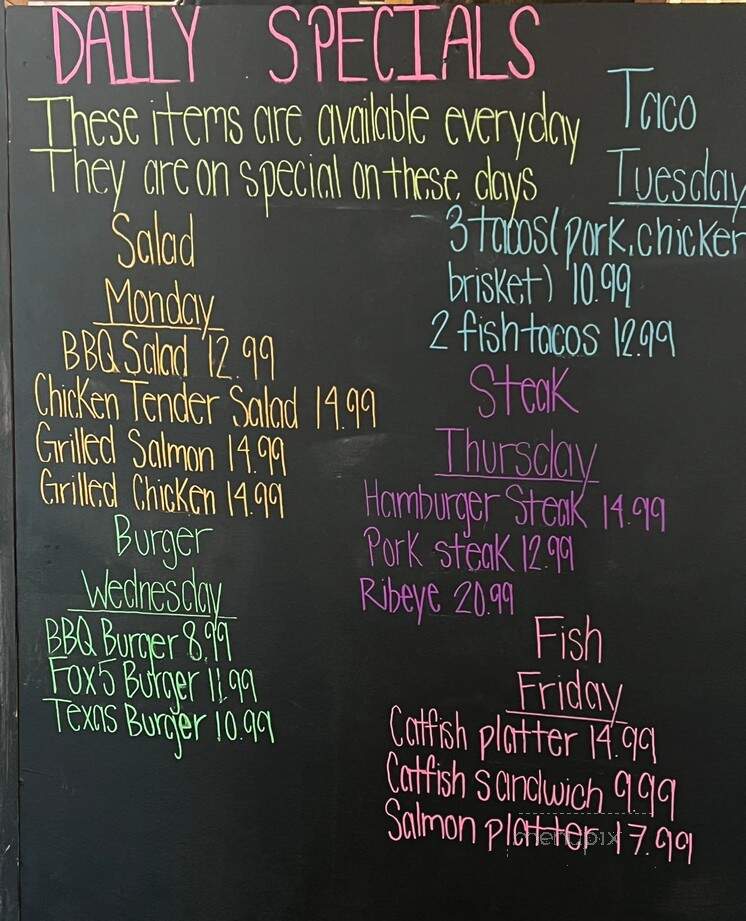 DAILY SPECIALS
These items are available everyday
They are on special on these days
Salad
Monday
BBQ Salad 12.99
Chicken Tender Salad 14.99
Grilled Salmon 14.99
Grilled Chicken 14.99
Burger
Wednesday
BBQ Burger 8.99
Fox5 Burger 11.99
Texas Burger 10.99
Taco
Tuesday
3 tacos (pork, chicken
brisket) 10.99
2 fish tacos 12.99
Steak
Thursday
Hamburger Steak 14.99
Pork steak 12.99
Ribeye 20.99
Fish
Friday
Catfish platter 14.99
Catfish sandwich 9.99
Salmon platter 17.99
menupix